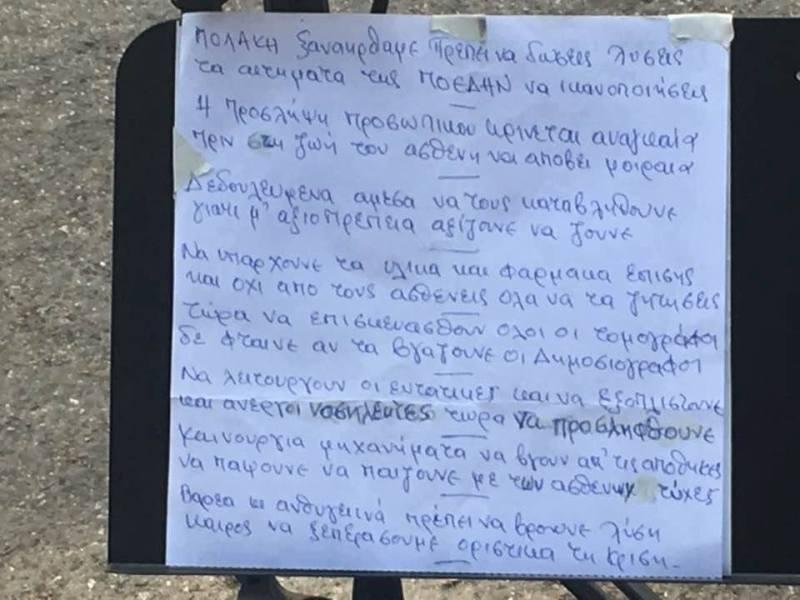 ΠΟΛΑΚΗ ξαναηρθαμε πρέπει να δώσεις λύσεις
τα αιτηματα της ΠΟΕΔΗΝ να ικανοποιήσεις
Η προσλήψη προσωπικου κρινεται αναγκαια
πριν στη ζωή του ασθενη να αποβει μοιραια
Δεδουλευμενα αμεσα να τους καταβληθουνε
γιατι μ' αξιοπρέπεια αξίζουνε να ζουνε
Να υπαρχουνε τα υλικα και φαρμακα επισης
και οχι απο τους ασθενεις ολα να τα ζητησεις
τώρα να επισκευασθουν ολοι οι τομογράφοι
δε φταινε αν τα βγαζουνε οι Δημοσιογραφοι
Να λειτουργουν οι εντατικες και να εξοπλιστουνε
και ανεργοι νοσηλευτες τώρα να προσληφθουνε
Καινουργια μηχανήματα να βγουν απ' τις αποθηκες
να παψουνε να παιζουνε με των ασθενων τύχες
Βαρεα κι ανθυγεινά πρέπει να βρουνε λύση
Καιρος να ξεπεράσουμε οριστικα τη κριση-